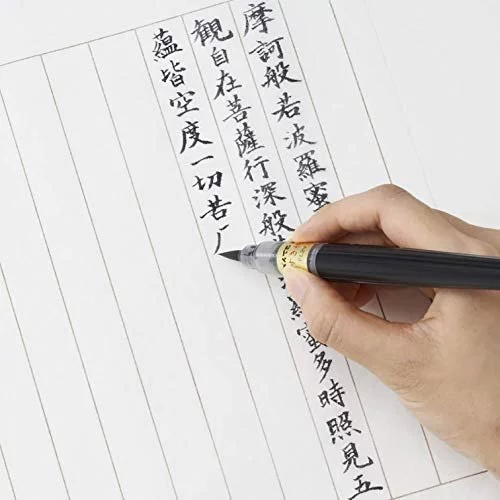 摩訶般若波羅蜜
観自在菩薩行深般蜜多時照見五
蘊皆空度一切苦